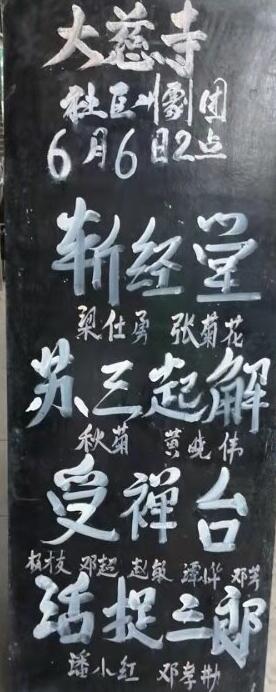 大慈寺
社区川剧团
6月6日2点
斩经堂
梁仕勇 张菊花
苏三起解
秋菊 黄晓伟
受禅台
邓超 赵敏 谭烨 邓芳
活捉三郎
潘小红 邓孝勋